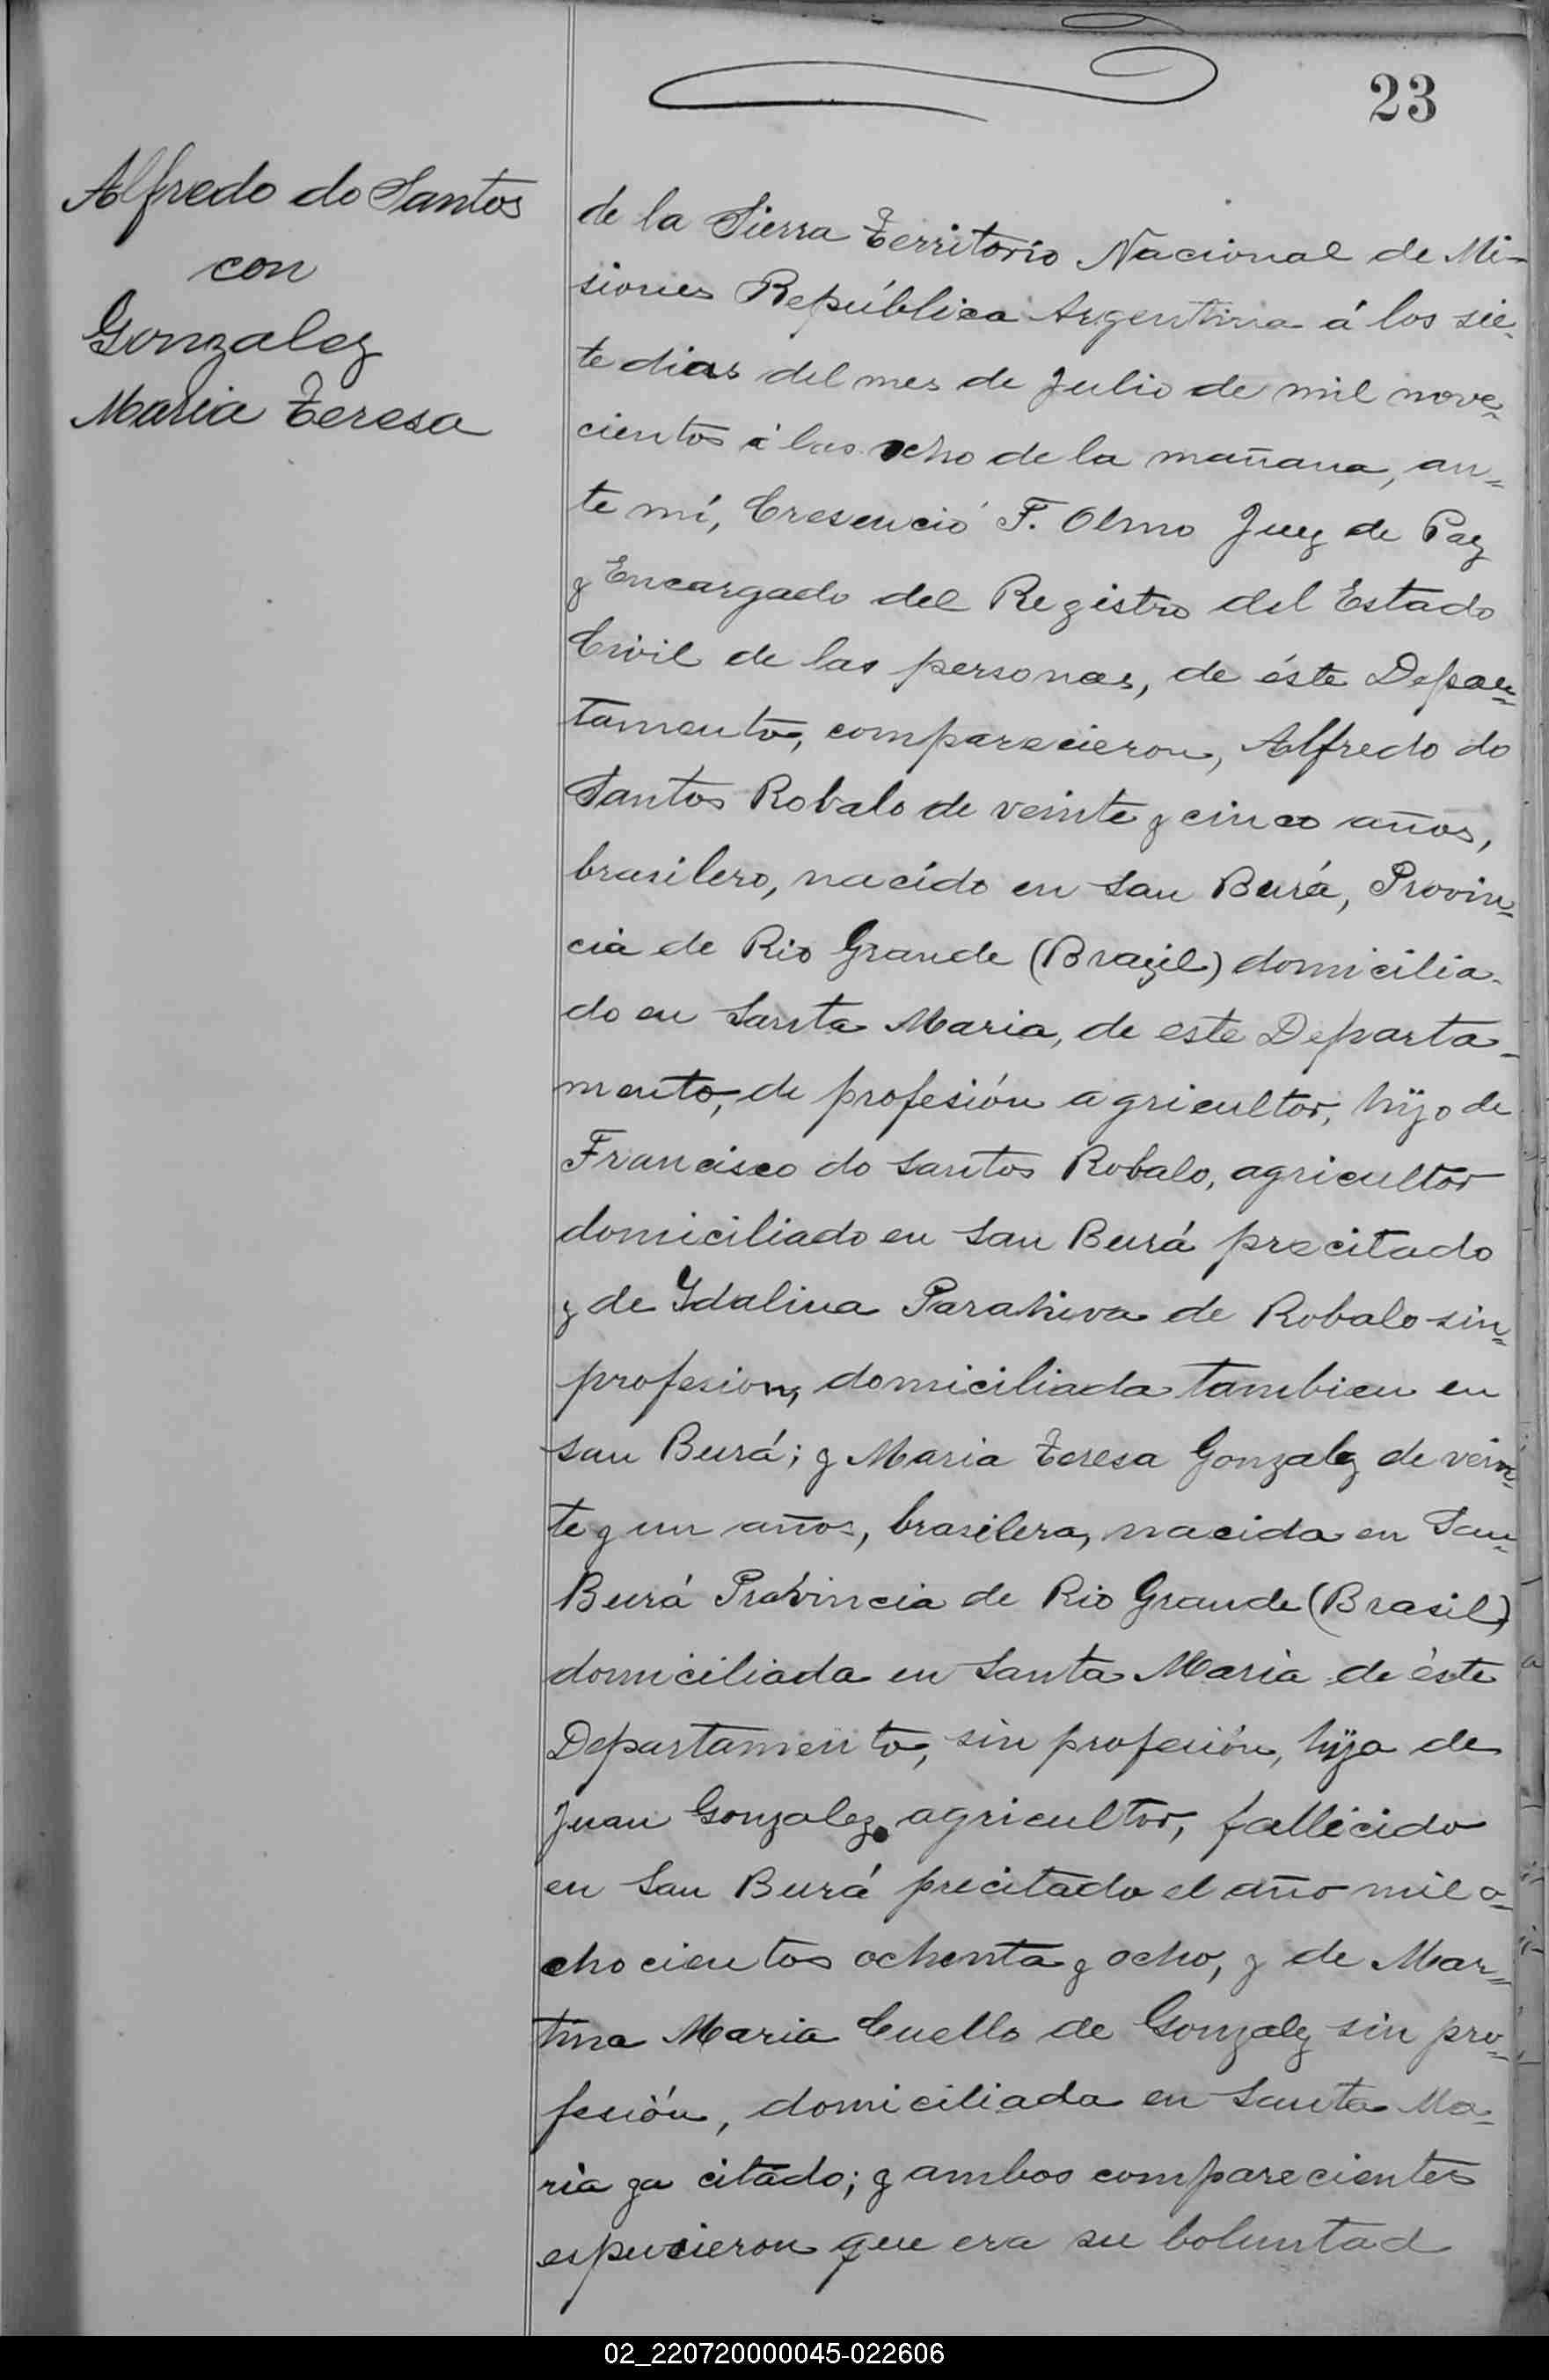 23
Alfredo do Santos
con
Gonzalez
Maria Teresa
de la Sierra Territorio Nacional de Mi-
siones República Argentina á los sie-
te dias del mes de Julio de mil nove-
cientos á las ocho de la mañana, an-
te mí, Cresencio F. Olmo Juez de Paz
y Encargado del Registro del Estado
Civil de las personas, de éste Depar-
tamento, comparecieron, Alfredo do
Santos Robalo de veinte y cinco años,
brasilero, nacido en San Burá, Provin-
cia de Rio Grande (Brazil) domicilia-
do en Santa Maria, de este Departa-
mento, de profesión agricultor, hijo de
Francisco do Santos Robalo, agricultor
domiciliado en San Burá precitado
y de Ydalina Parahiva de Robalo sin
profesion, domiciliada tambien en
San Burá; y Maria Teresa Gonzalez de vein-
te y un años, brasilera, nacida en San
Burá Provincia de Rio Grande (Brasil)
domiciliada en Santa Maria de éste
Departamento, sin profesión, hija de
Juan Gonzalez agricultor, fallecido
en San Burá precitado el año mil o-
chocientos ochenta y ocho, y de Mar-
tina Maria Cuello de Gonzalez sin pro-
fesión, domiciliada en Santa Ma-
ria ya citado; y ambos comparecientes
espucieron que era su boluntad
02_220720000045-022606